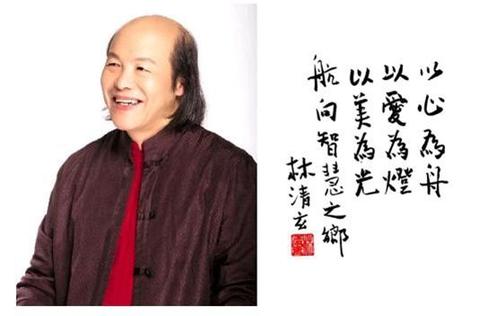 以心為舟
以愛為燈
以美為光
航向智慧之鄉
林清玄